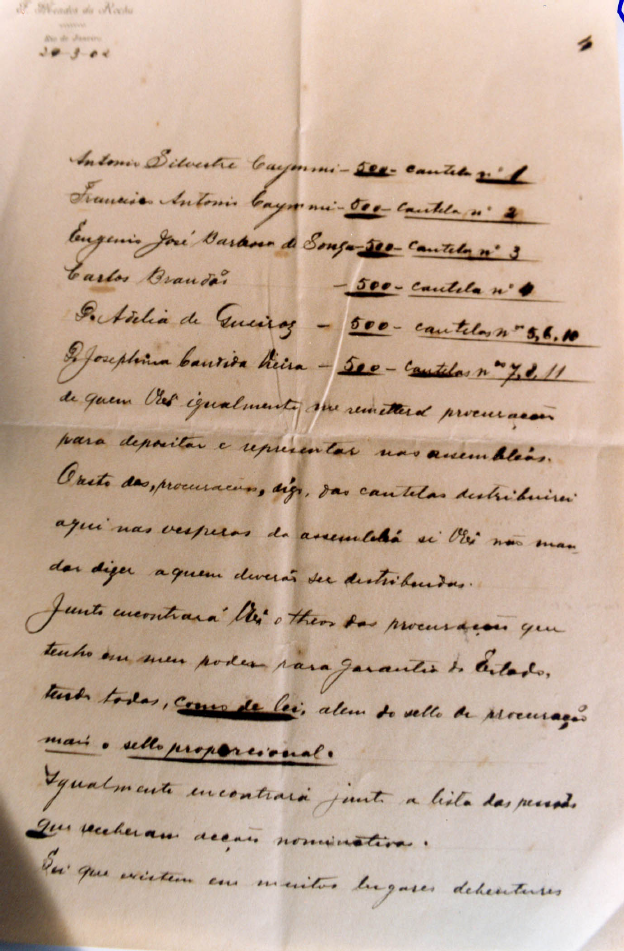 F. Mendes da Rocha
Rio de Janeiro
20-3-02
4
Antonio Silvestre Caymmi - 500 - cautela nº 1
Francisco Antonio Caymmi - 500 - cautela nº 2
Eugenio José Barbosa de Souza - 500 - cautela nº 3
Carlos Brandão - 500 - cautela nº 4
D. Adelia de Queiroz - 500 - cautelas nos 5, 6, 10
D. Josephina Candida Vieira - 500 - cautelas nos 7, 8, 11
de quem igualmente me remetterá procuração
para depositar e representar nas assembléas.
O resto das, procurações, digo, das cautelas distribuirei
aqui nas vesperas da assembléa si não man-
dar dizer a quem deverão ser distribuidas.
Junto encontrará o theor das procurações que
tenho em meu poder para garantia do Estado,
tendo todas, como de lei, alem do sello de procuração
mais o sello proporcional.
Igualmente encontrará junto a lista das pessôas
que receberam acções nominativas.
Sei que existem em muitos lugares debentures